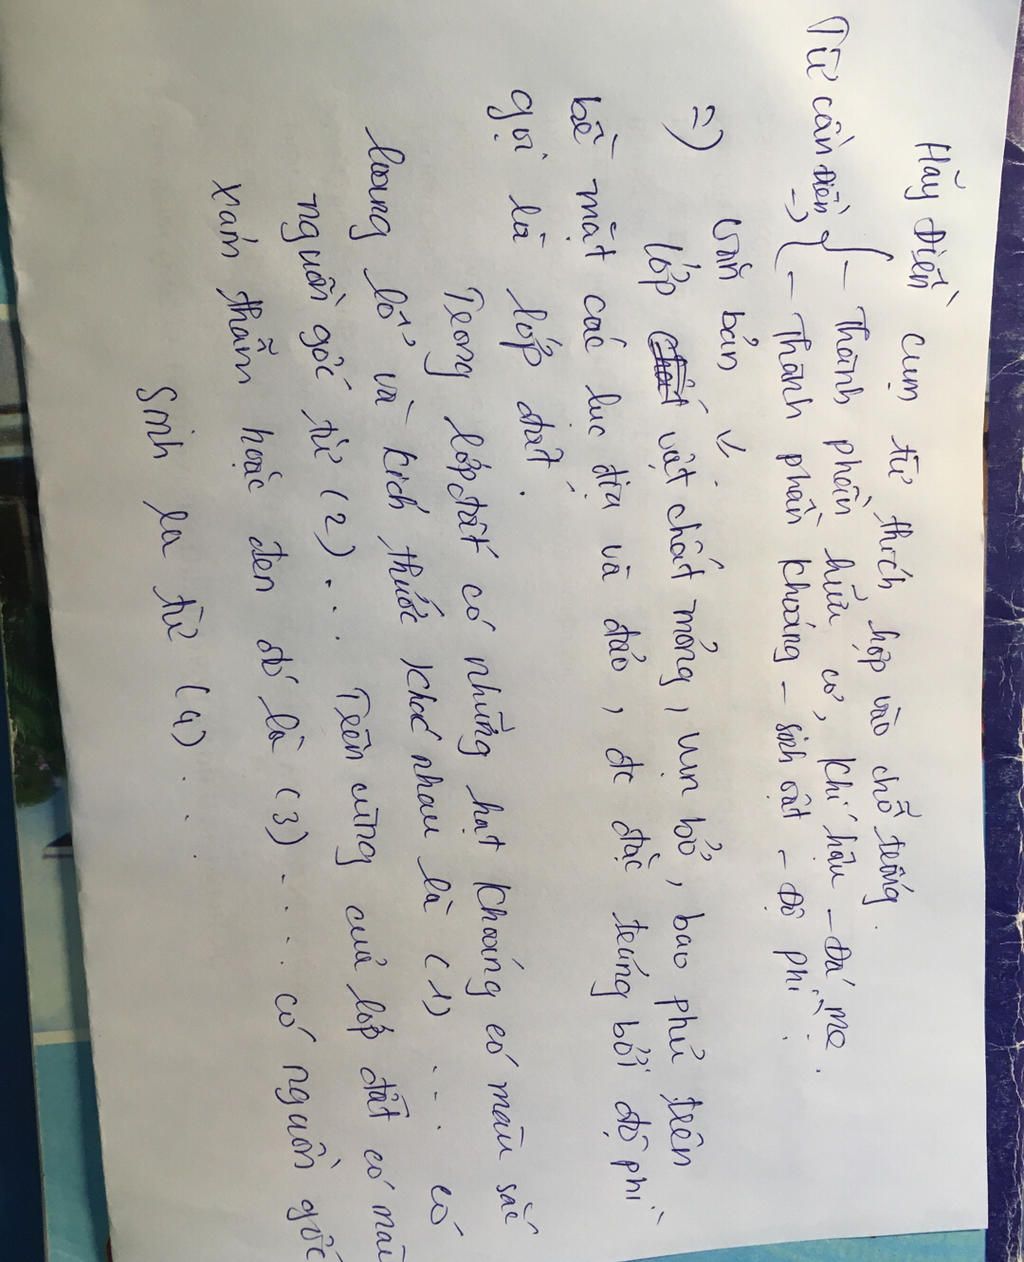 Hãy Điền cụm từ thích hợp vào chỗ trống.
Từ cần điền { - thành phần hữu cơ, khí hậu - Đá mẹ.
-) { - thành phần khoáng - sinh vật - Độ phì.
=) văn bản ↓.
lớp vật chất mỏng, vụn bở, bao phủ trên
bề mặt các lục địa và đảo, đc đặc trưng bởi độ phì
gọi là lớp đất.
Trong lớp đất có những hạt khoáng có màu sắc
loang lổ và kích thước khác nhau là (1) .... có
nguồn gốc từ (2)... Trên cùng của lớp đất có màu
xám thẫm hoặc đen đó là (3) ... có nguồn gốc
Sinh ra từ (4) ...